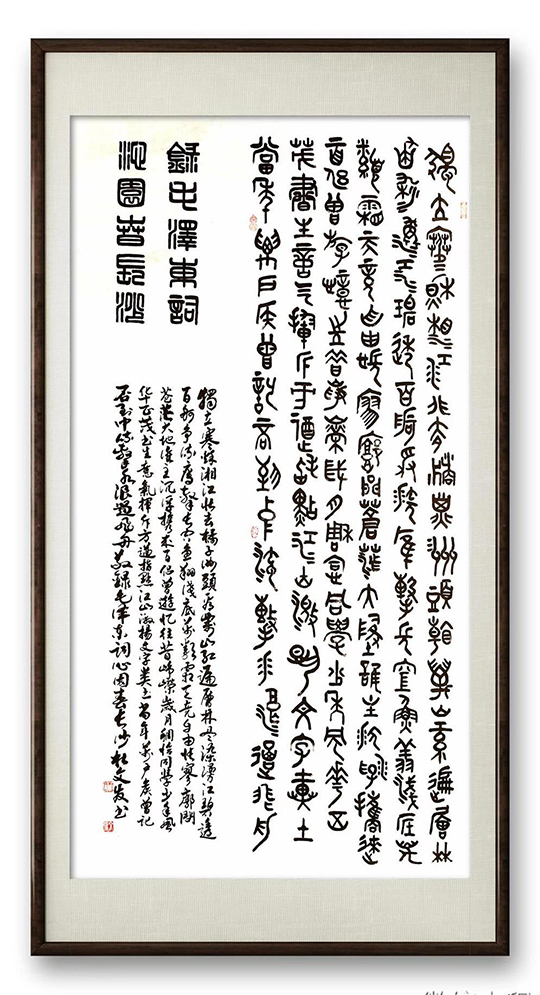 獨立寒秋湘江北去橘子洲頭看萬山紅遍層林
盡染漫江碧透百舸爭流鷹擊長空魚翔淺底万
類霜天競自由悵寥廓問蒼茫大地誰主沉浮攜來
百侶曾遊憶往昔崢嶸歲月稠恰同學少年風華正
茂書生意氣揮斥方遒指點江山激揚文字糞土
當年萬戶侯曾記否到中流擊水浪遏飛舟
錄毛澤東詞
沁園春長沙
獨立寒秋湘江北去橘子洲頭看萬山紅遍層林尽染漫江碧透
百舸争流鹰擊長空魚翔淺底萬類霜天競自由悵寥廓問
蒼茫大地誰主沉浮携來百侶曾遊忆往昔崢嶸歲月稠恰同學少年風
华正茂书生意氣揮斥方遒指點江山激揚文字糞土當年萬户侯曾記
否到中流擊水浪遏飛舟敬錄毛泽东詞沁园春長沙杜文发书